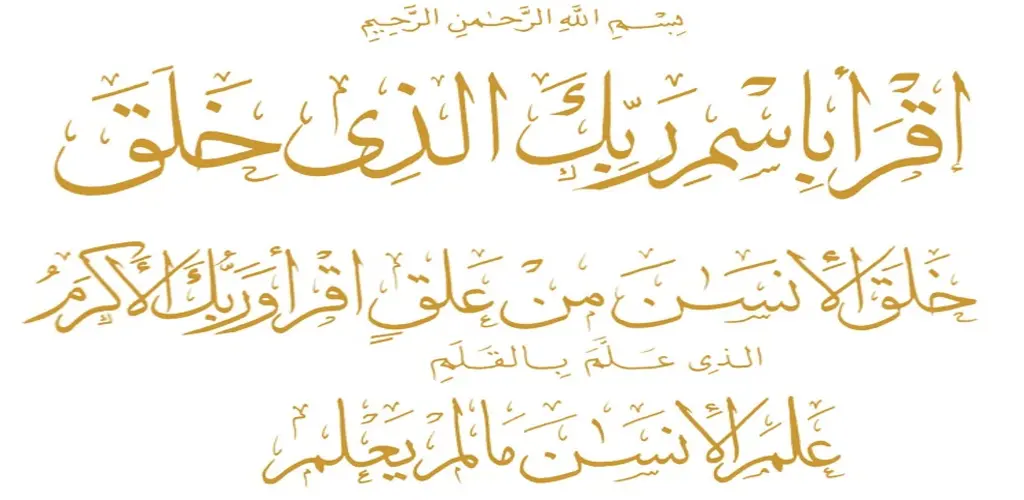 بِسْمِ اللَّهِ الرَّحْمٰنِ الرَّحِيمِ
اِقْرَأْ بِاسْمِ رَبِّكَ الَّذِى خَلَقَ
خَلَقَ الْأِنسَٰنَ مِنْ عَلَقٍ اقْرَأْ وَرَبُّكَ الْأَكْرَمُ
الذِى عَلَّمَ بِالقَلَمِ
عَلَّمَ الْأِنسَٰنَ مَا لَمْ يَعْلَمْ